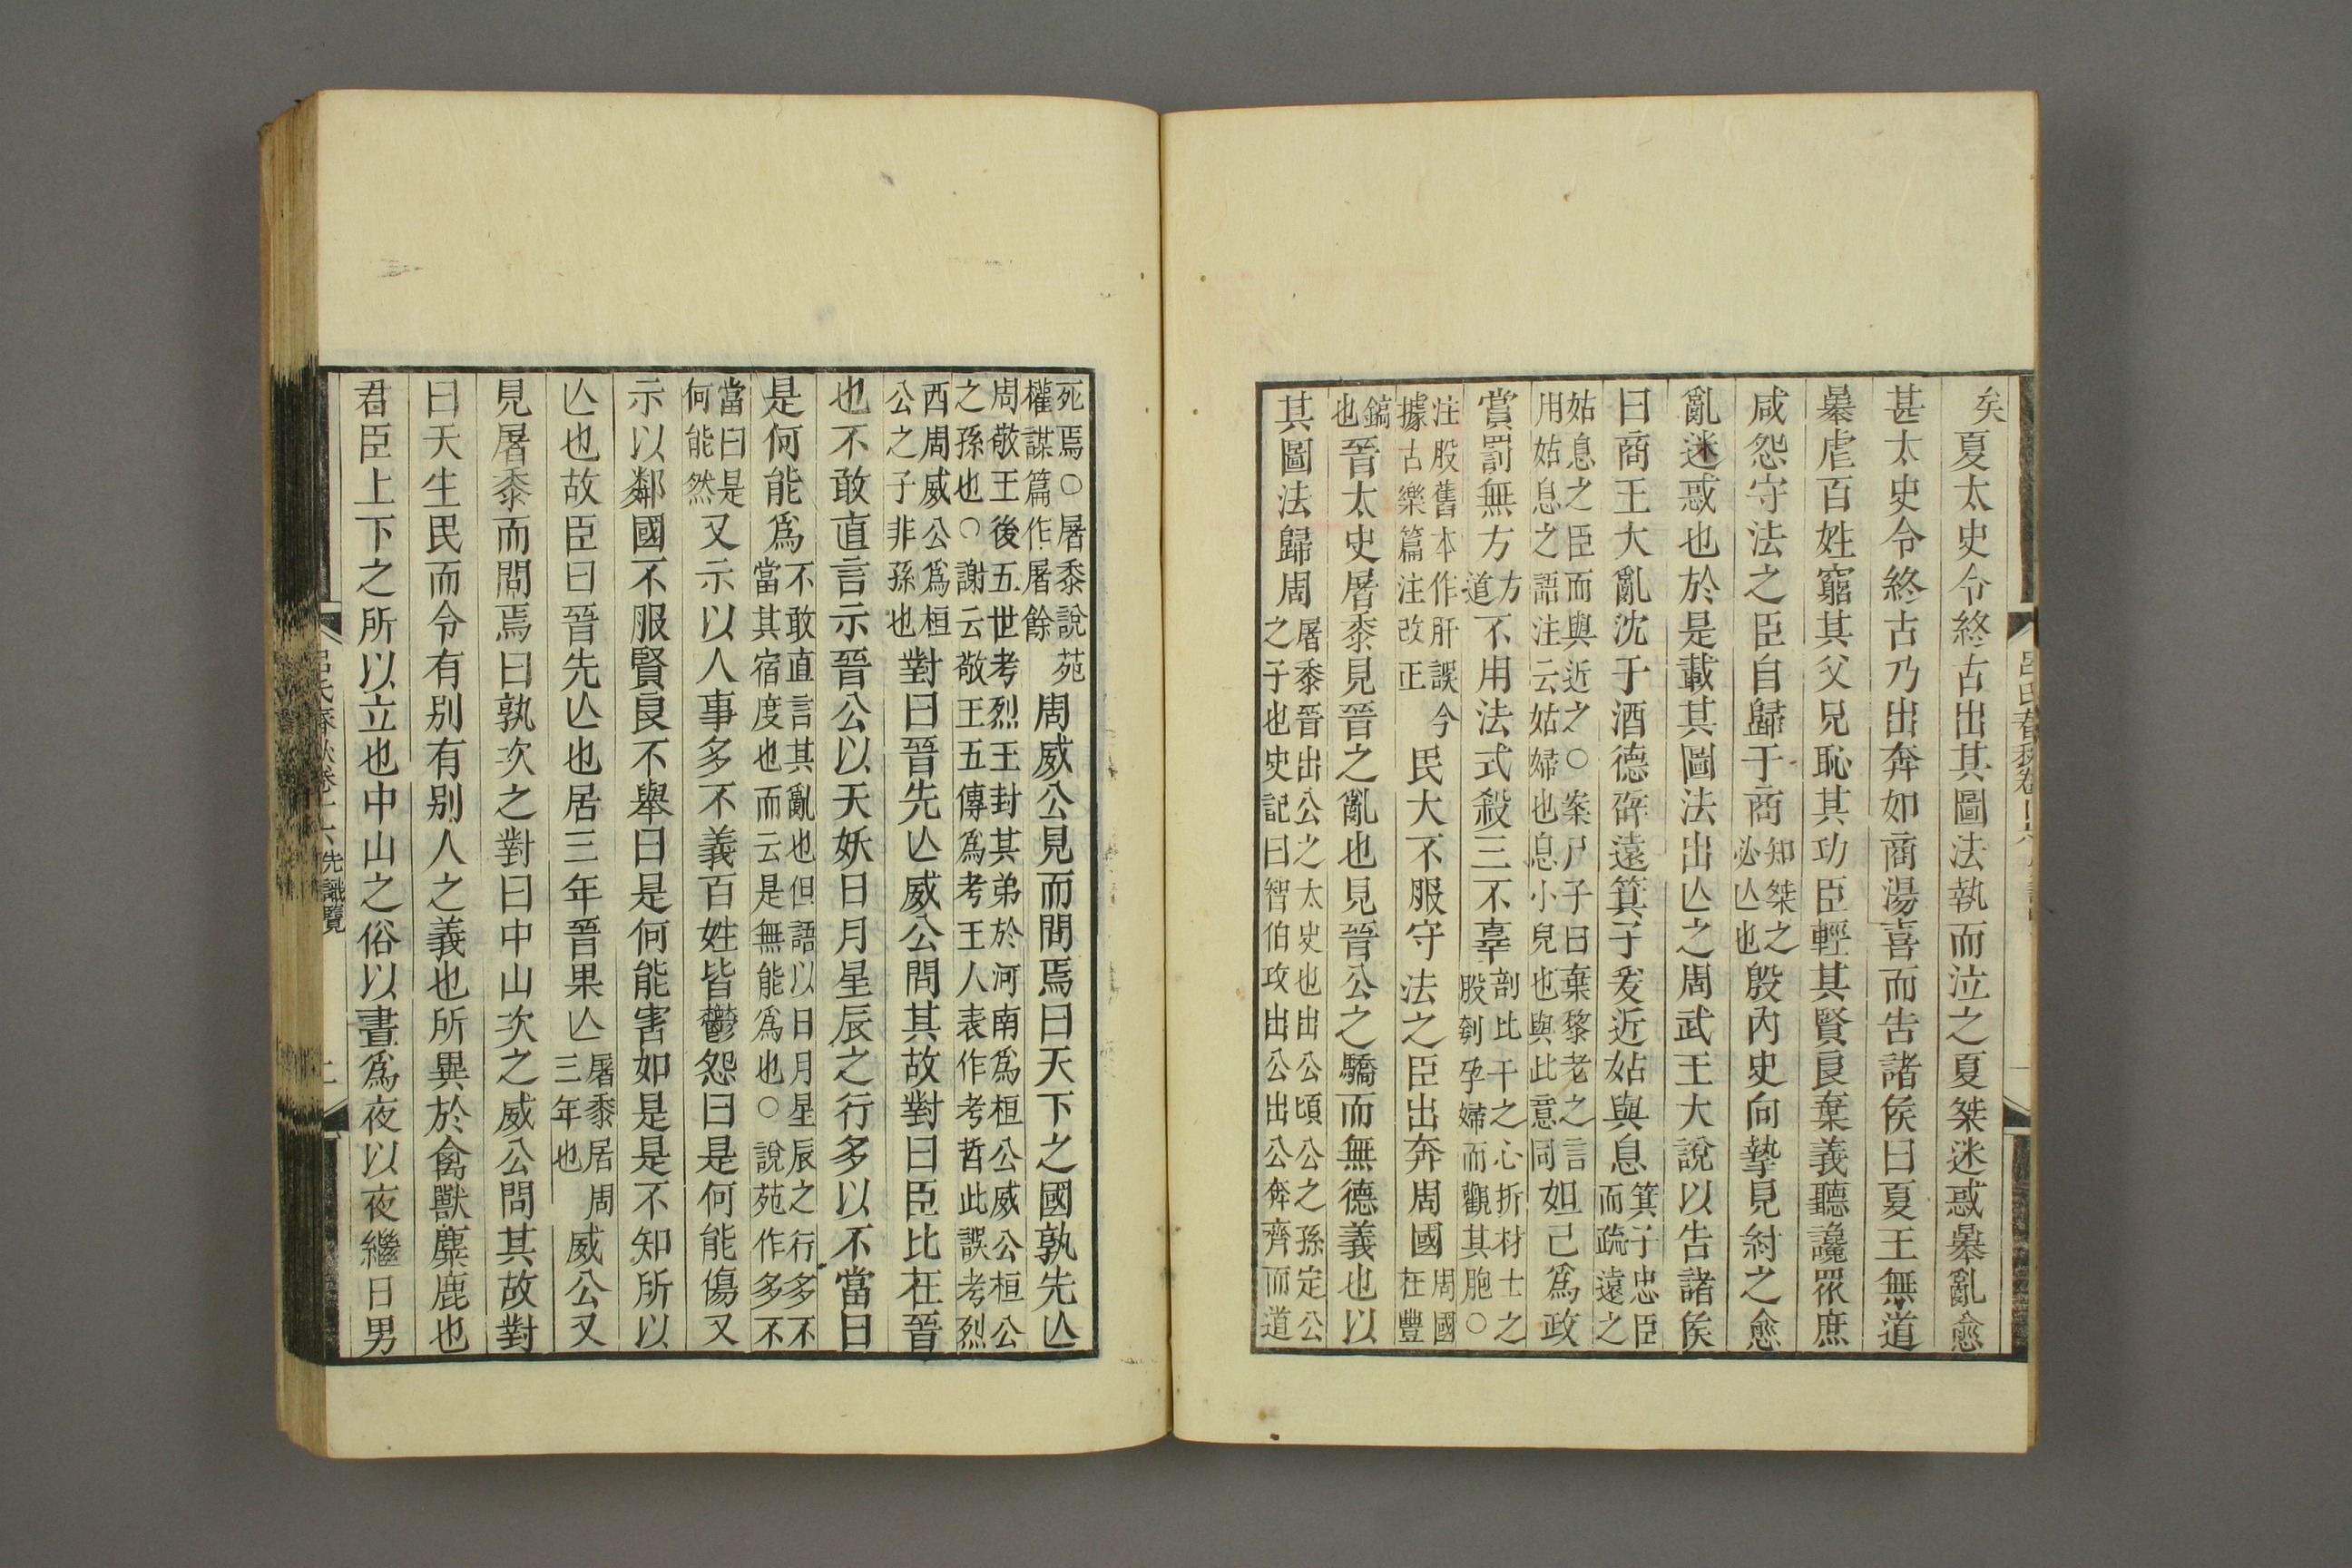 矣夏太史令終古出其圖法執而泣之夏桀迷惑暴亂愈
甚太史令終古乃出奔如商湯喜而告諸侯曰夏王無道
暴虐百姓窮其父兄恥其功臣輕其賢良棄義聽讒眾庶
咸怨守法之臣自歸于商知桀之必亾也殷內史向摯見紂之愈
亂迷惑也於是載其圖法出亾之周武王大說以告諸侯
曰商王大亂沈于酒德辟遠箕子爰近姑與息箕子忠臣而疏遠之
姑息之臣而與近之○案尸子曰棄黎老之言用姑息之語注云姑婦也息小兒也與此意同妲己為政
賞罰無方方道不用法式殺三不辜剖比干之心折材士之股刳孕婦而觀其胞○
注股舊本作肝誤今據古樂篇注改正民大不服守法之臣出奔周國周國在豐
鎬也晉太史屠黍見晉之亂也見晉公之驕而無德義也以
其圖法歸周屠黍晉出公之太史也出公頃公之孫定公之子也史記曰智伯攻出公出公奔齊而道
死焉○屠黍說苑權謀篇作屠餘周威公見而問焉曰天下之國孰先亾
周敬王後五世考烈王封其弟於河南為桓公威公桓公之孫也○謝云敬王五傳為考王人表作考哲此誤考烈
西周威公為桓公之子非孫也對曰晉先亾威公問其故對曰臣比在晉
也不敢直言示晉公以天妖日月星辰之行多以不當曰
是何能為不敢直言其亂也但語以日月星辰之行多不當其宿度也而云是無能為也○說苑作多不
當曰是何能然又示以人事多不義百姓皆鬱怨曰是何能傷又
示以鄰國不服賢良不舉曰是何能害如是是不知所以
亾也故臣曰晉先亾也居三年晉果亾屠黍居周三年也威公又
見屠黍而問焉曰孰次之對曰中山次之威公問其故對
曰天生民而令有別有別人之義也所異於禽獸麋鹿也
君臣上下之所以立也中山之俗以晝為夜以夜繼日男
呂氏春秋卷十六先識覽
二